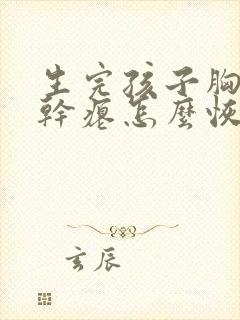 生完孩子胸
幹瘪怎麼恢
玄辰